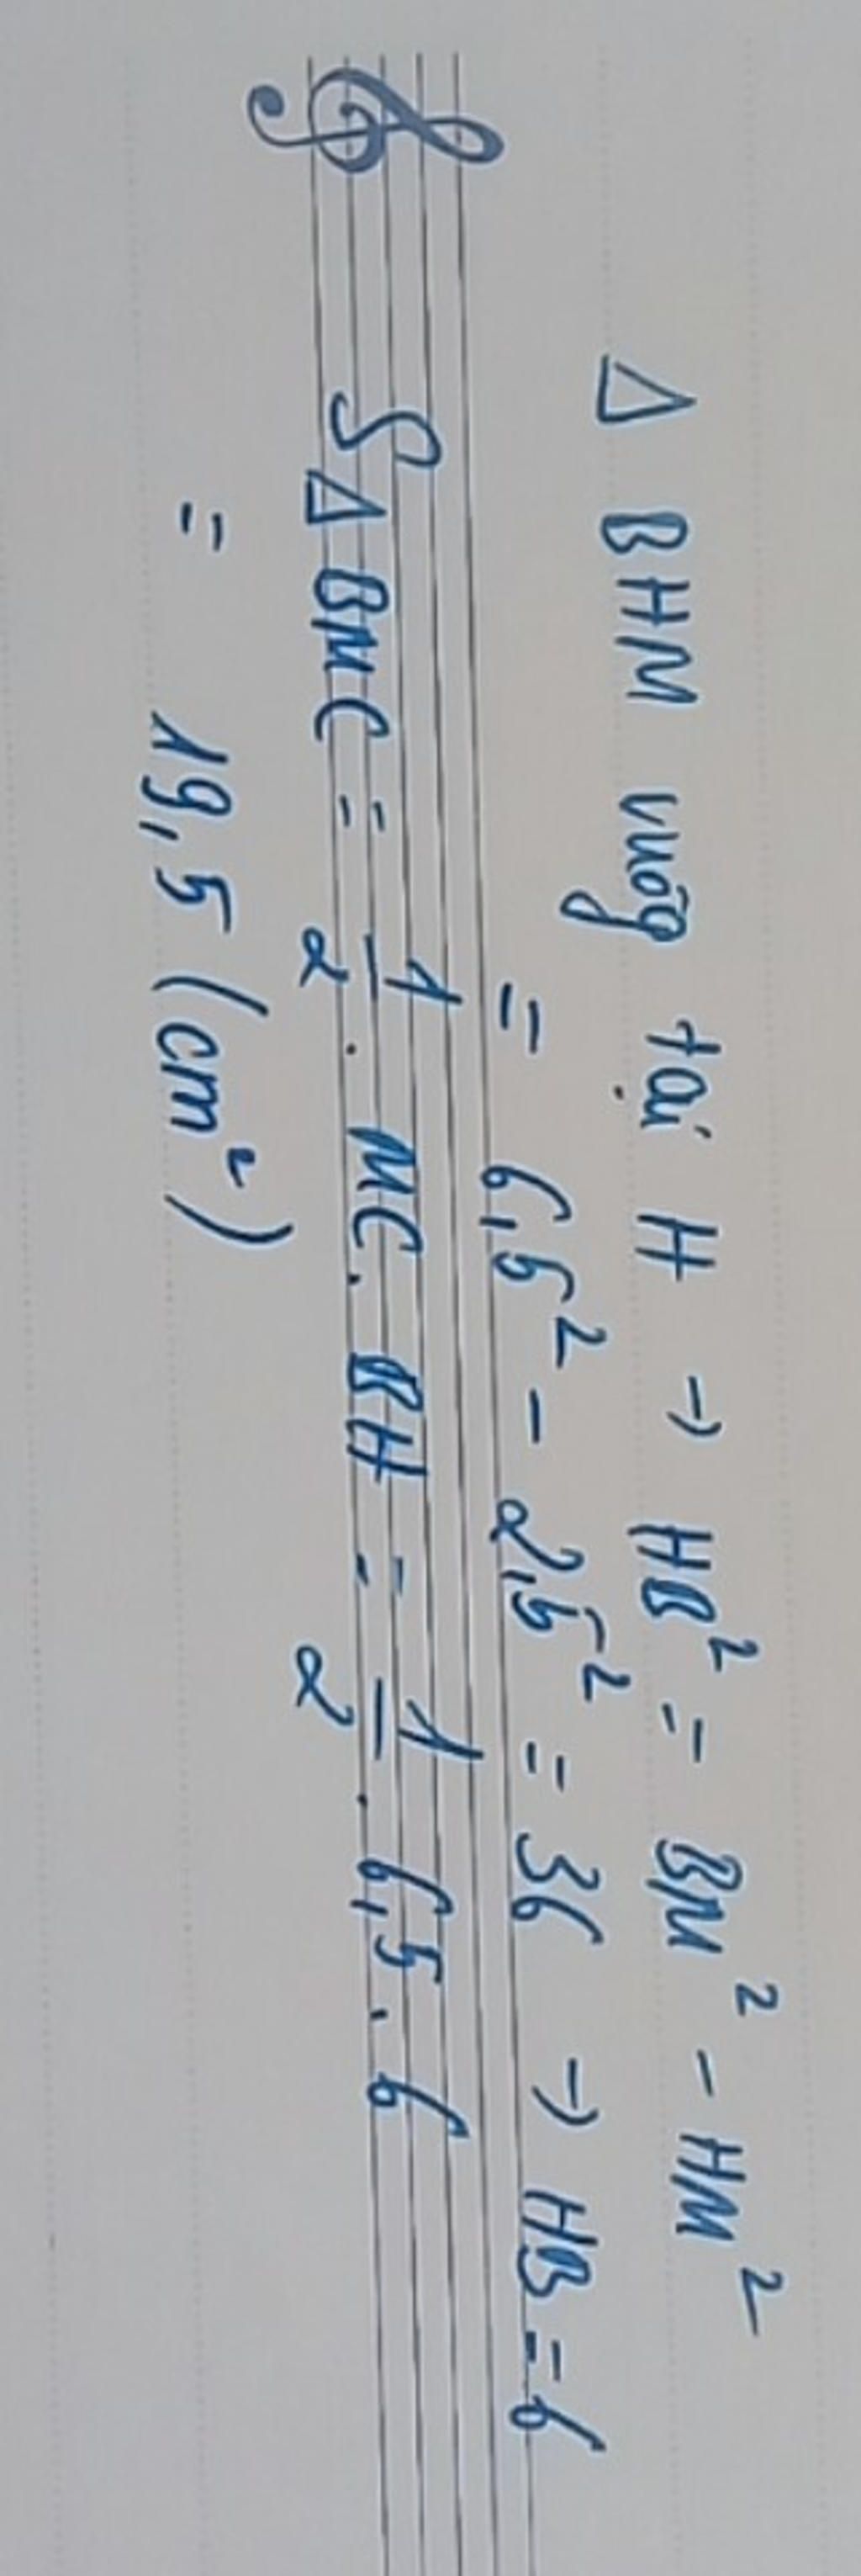 Δ BHM vuôg tại H → HB² = BM² - HM²
= 6,5² - 2,5² = 36 → HB = 6
S Δ BMC = 1/2 . MC. BH = 1/2 . 6,5 . 6
= 19,5 (cm²)